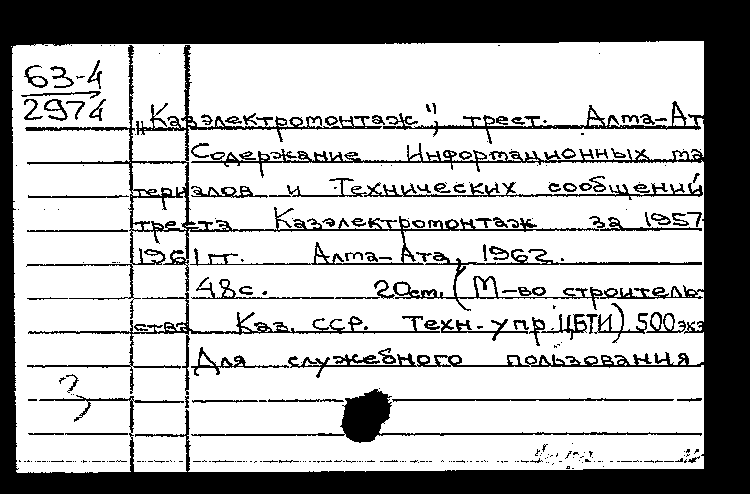 63-4
2974
„Казэлектромонтаж", трест. Алма-Ат
Содержание Информационных ма
териалов и Технических сообщений
треста Казэлектромонтаж за 1957-
1961 гг. Алма-Ата, 1962.
48с. 20см. (М-во строитель-
ства Каз. ССР. Техн.-упр. ЦБТИ) 500экз
Для служебного пользования
3